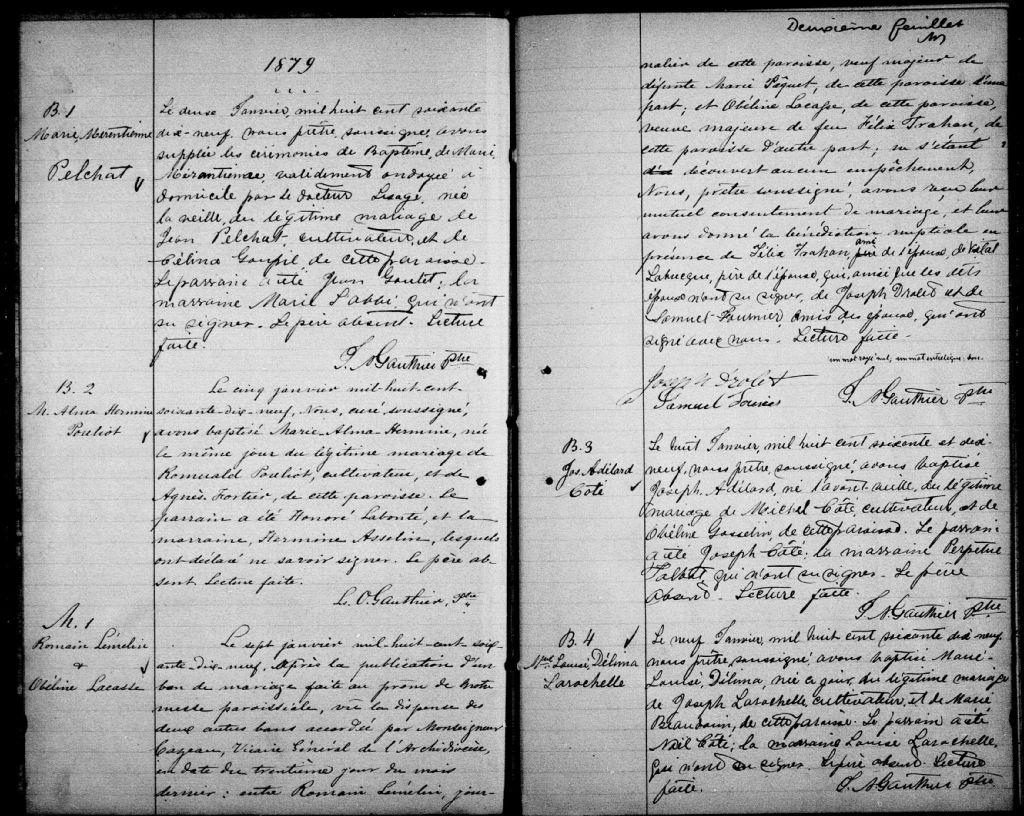 1879
B. 1
Marie, Mérentienne
Pelchat
Le deuse Janvier, mil huit cent soixante
dix-neuf, nous prêtre, soussigné, avons
supplée les cérémonies de Baptême, de Marie
Mérantienne, validement ondoyée à
domicile par le docteur Lesage, née
la veille, du légitime mariage de
Jean Pelchat, cultivateur, et de
Célina Goupil de cette paroisse.
Le parrain a été Jean Goulet; la
marraine Marie Labbé qui n'ont
su signer. Le père absent. Lecture
faite.
J. N Gauthier Ptre
B. 2
M. Alma Hermine
Pouliot
Le cinq janvier mil-huit-cent-
soixante-dix-neuf, Nous, curé soussigné,
avons baptisé Marie-Alma-Hermine, née
le même jour du légitime mariage de
Romuald Pouliot, cultivateur, et de
Agnès Fortier, de cette paroisse. Le
parrain a été Honoré Labonté, et la
marraine, Hermine Asselin, lesquels
ont déclaré ne savoir signer. Le père ab-
sent Lecture faite.
Ls. O. Gauthier, Ptre
M. 1
Romain Lémelin
&
Obéline Lacasse
Le sept janvier mil-huit-cent-soix-
ante-dix-neuf, Après la publication d'un
bon de mariage faite au prône de Notre
messe paroissiale, vu la dispense des
deux autres bans accordée par Monseigneur
Cazeau, Vicaire Général de l'Archidiocèse,
en date du trentième jour du mois
dernier: entre Romain Lemelin, jour-
Deuxième feuillet
nalier de cette paroisse, veuf majeur de
défunte Marie Pâquet, de cette paroisse d'une
part, et Obéline Lacasse, de cette paroisse,
veuve majeure de feu Félix Trahan, de
cette paroisse D'autre part; ne s'étant
découvert aucun empêchement,
Nous, prêtre soussigné avons reçu leur
mutuel consentement de mariage, et leur
avons donné la bénédiction nuptiale en
présence de Félix Trahan, ami père de l'époux, de Vital
Labrecque, père de l'épouse, qui, ainsi que les dits
époux n'ont su signer, de Joseph Drolet et de
Samuel Fournier, amis des époux, qui ont
signé avec nous. Lecture faite.
un mot rayé nul, un mot interligne bon.
Joseph Drolet
Samuel
J. N Gauthier Ptre
B. 3
Jos. Adélard
Côté
Le huit Janvier, mil huit cent soixante et dix-
neuf, nous prêtre, soussigné, avons baptisé
Joseph Adélard, né l'avant veille, du légitime
mariage de Michel Côté, cultivateur, et de
Obéline Gosselin, de cette paroisse. Le parrain
a été Joseph Côté; la marraine Perpétue
Talbot, qui n'ont su signer. Le père
absent. Lecture faite.
J. N Gauthier Ptre
B. 4
Mie Louise, Délima
Larochelle
Le neuf Janvier, mil huit cent soixante dix neuf,
nous prêtre, soussigné avons baptisé Marie
Louise, Délima, née ce jour, du légitime mariage
de Joseph Larochelle, cultivateur, et de Marie
Beaudoin, de cette paroisse. Le parrain a été
Noël Côté; la marraine Louise Larochelle,
qui n'ont su signer. Le père absent. Lecture
faite.
J. N Gauthier Ptre